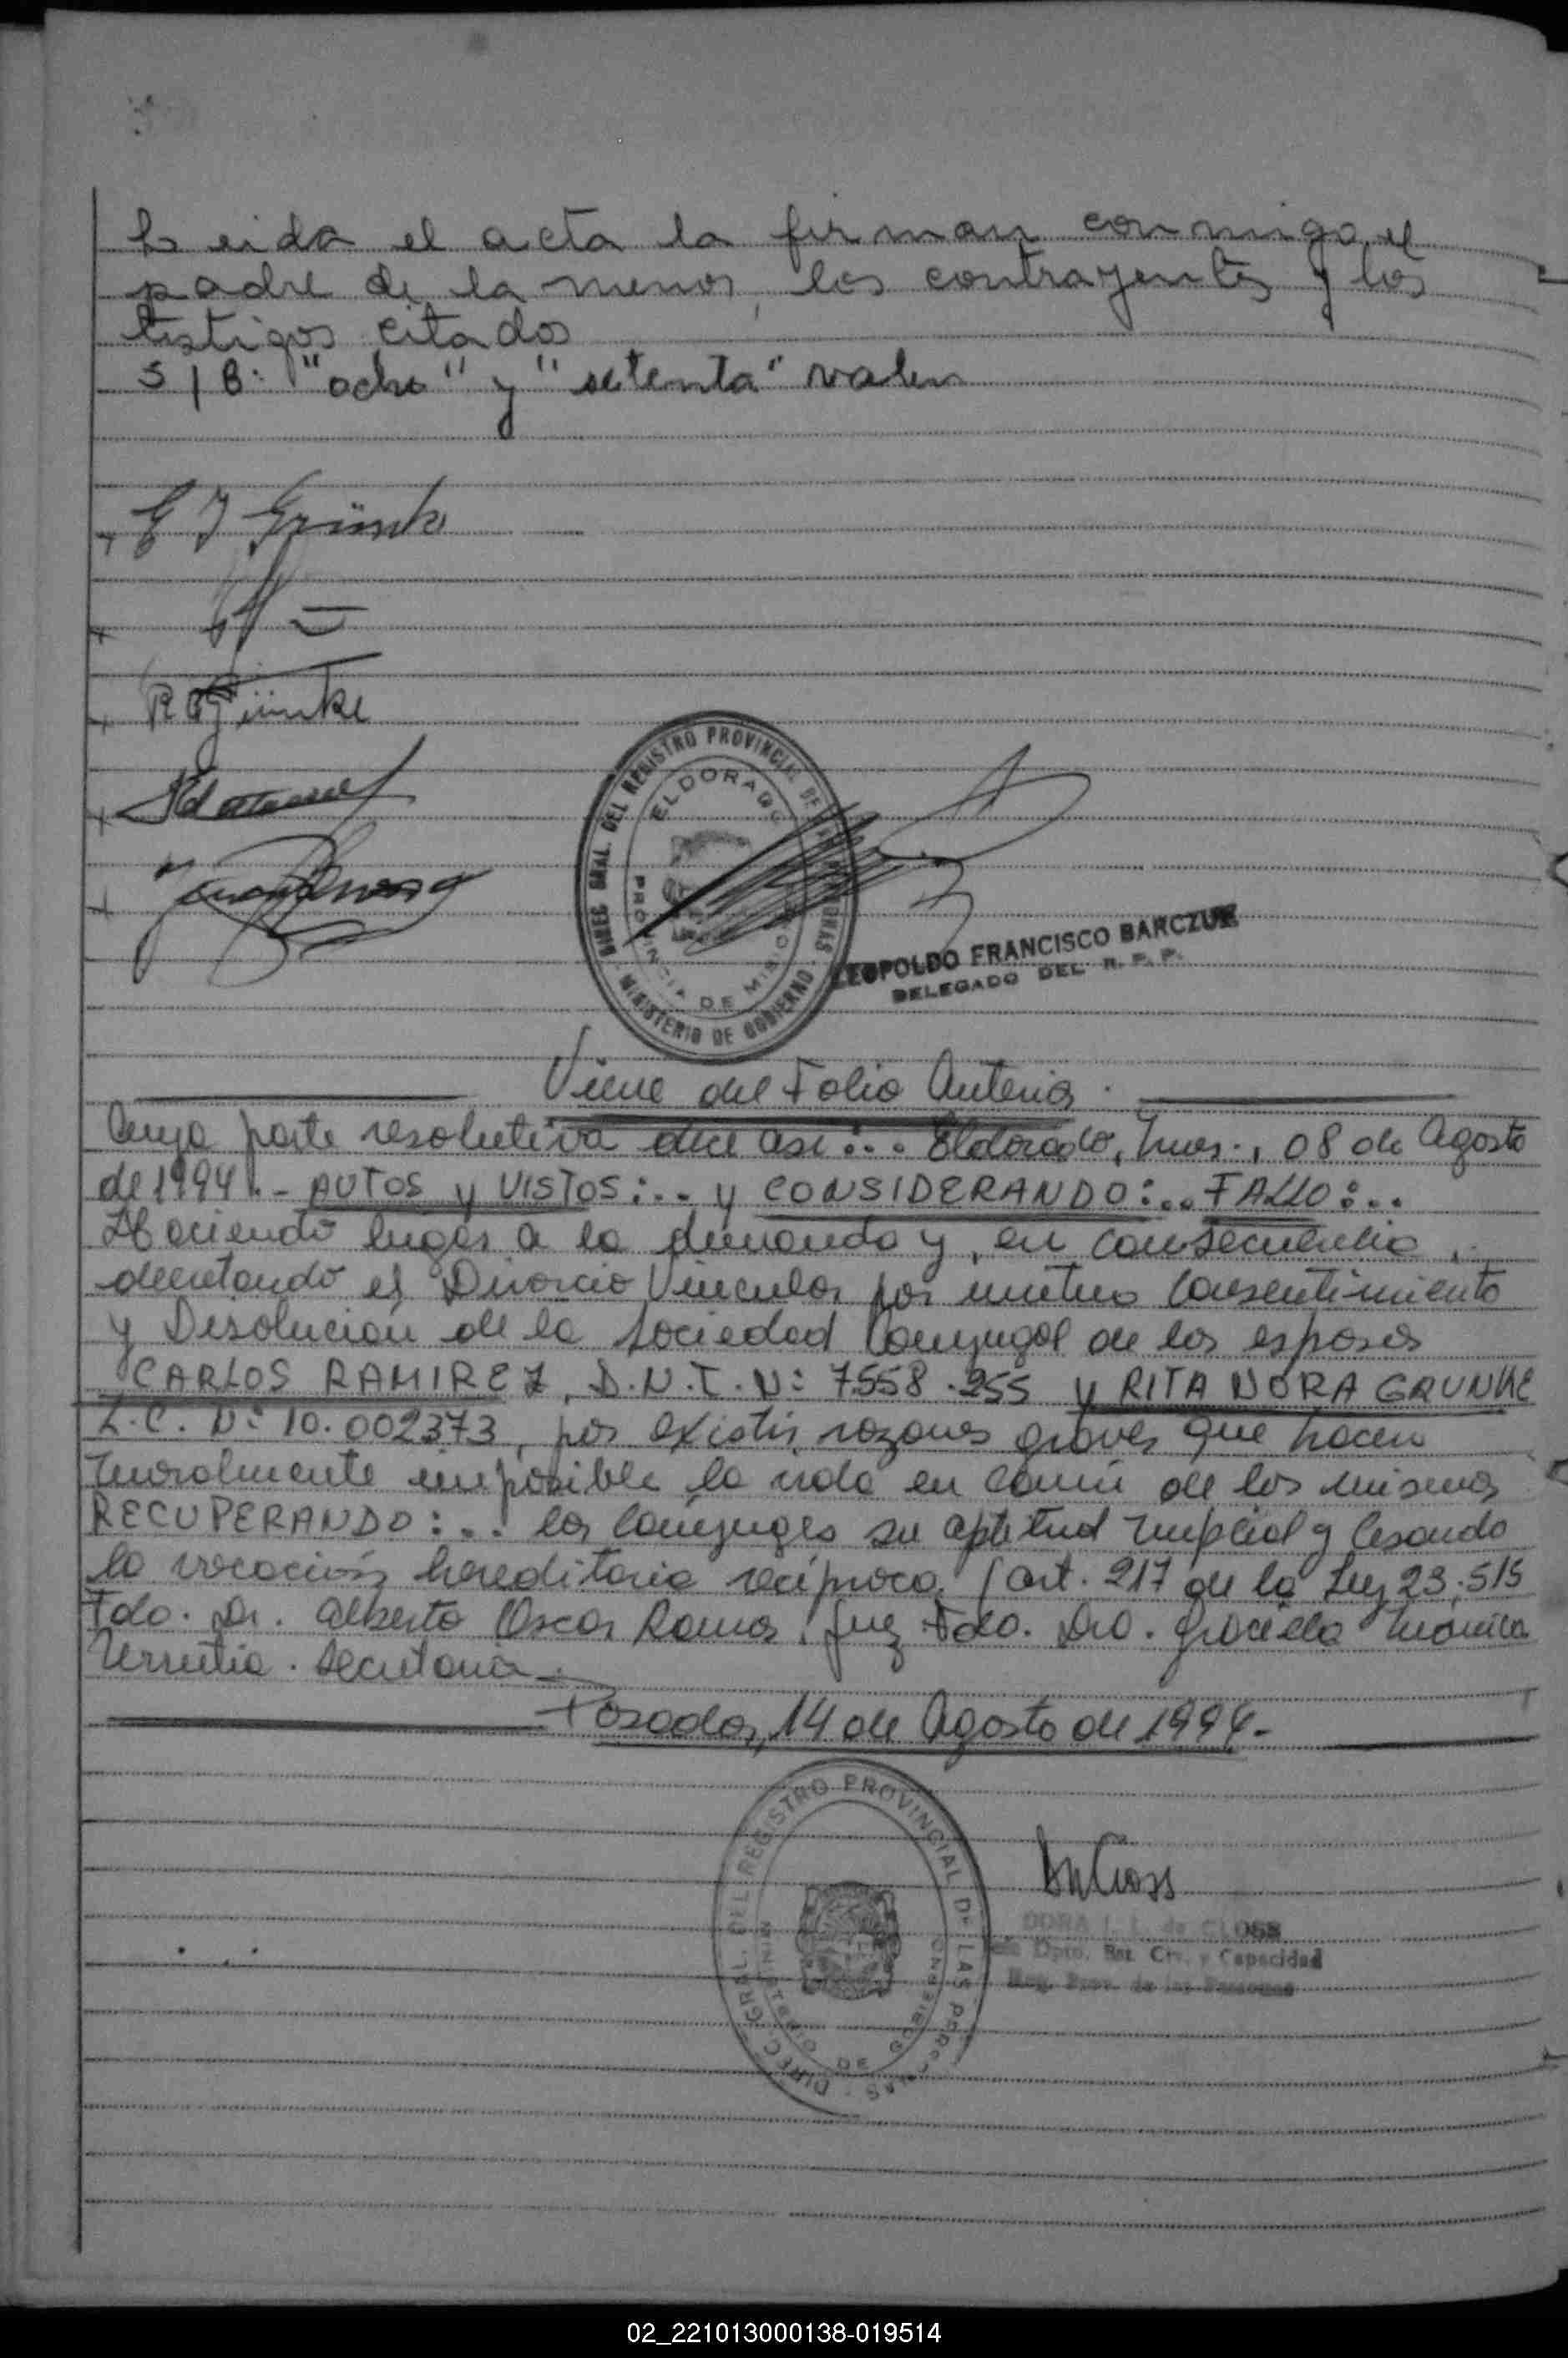 Leida el acta la firman conmigo, el
padre de la menor, los contrayentes y los
testigos citados
S/B: "ocho" y "setenta" valen
E J Grünke
R Grünke
DIREC. GRAL. DEL REGISTRO PROVINCIAL DE LAS PERSONAS
MINISTERIO DE GOBIERNO
ELDORADO
PROVINCIA DE MISIONES
LEOPOLDO FRANCISCO BARCZUK
DELEGADO DEL R. P. P.
Viene del Folio Anterior.
Cuya parte resolutiva dice así:.. Eldorado, Mnes., 08 de Agosto
de 1994.- AUTOS y VISTOS:.. y CONSIDERANDO:.. FALLO:..
Haciendo lugar a la demanda y, en consecuencia,
decretando el Divorcio Vincular por mutuo Consentimiento
y Disolución de la Sociedad Conyugal de los esposos
CARLOS RAMIREZ, D.N.I. Nº 7.558.255 y RITA NORA GRUNKE
L.C. Nº 10.002373, por existir razones graves que hacen
moralmente imposible la vida en común de los mismos
RECUPERANDO:... los Cónyuges su aptitud nupcial y Cesando
la vocación hereditaria recíproca (art. 217 de la Ley 23.515
Fdo. Dr. Alberto Oscar Ramos. Juez Fdo. Dra. Graciela Mónica
Urrutia. Secretaria.-
Posadas, 14 de Agosto de 1994.-
DIREC. GRAL. DEL REGISTRO PROVINCIAL DE LAS PERSONAS
MINISTERIO DE GOBIERNO
DORA I. L. de CLOSS
Jefe Dpto. Est. Civ. y Capacidad
Reg. Prov. de las Personas
02_221013000138-019514